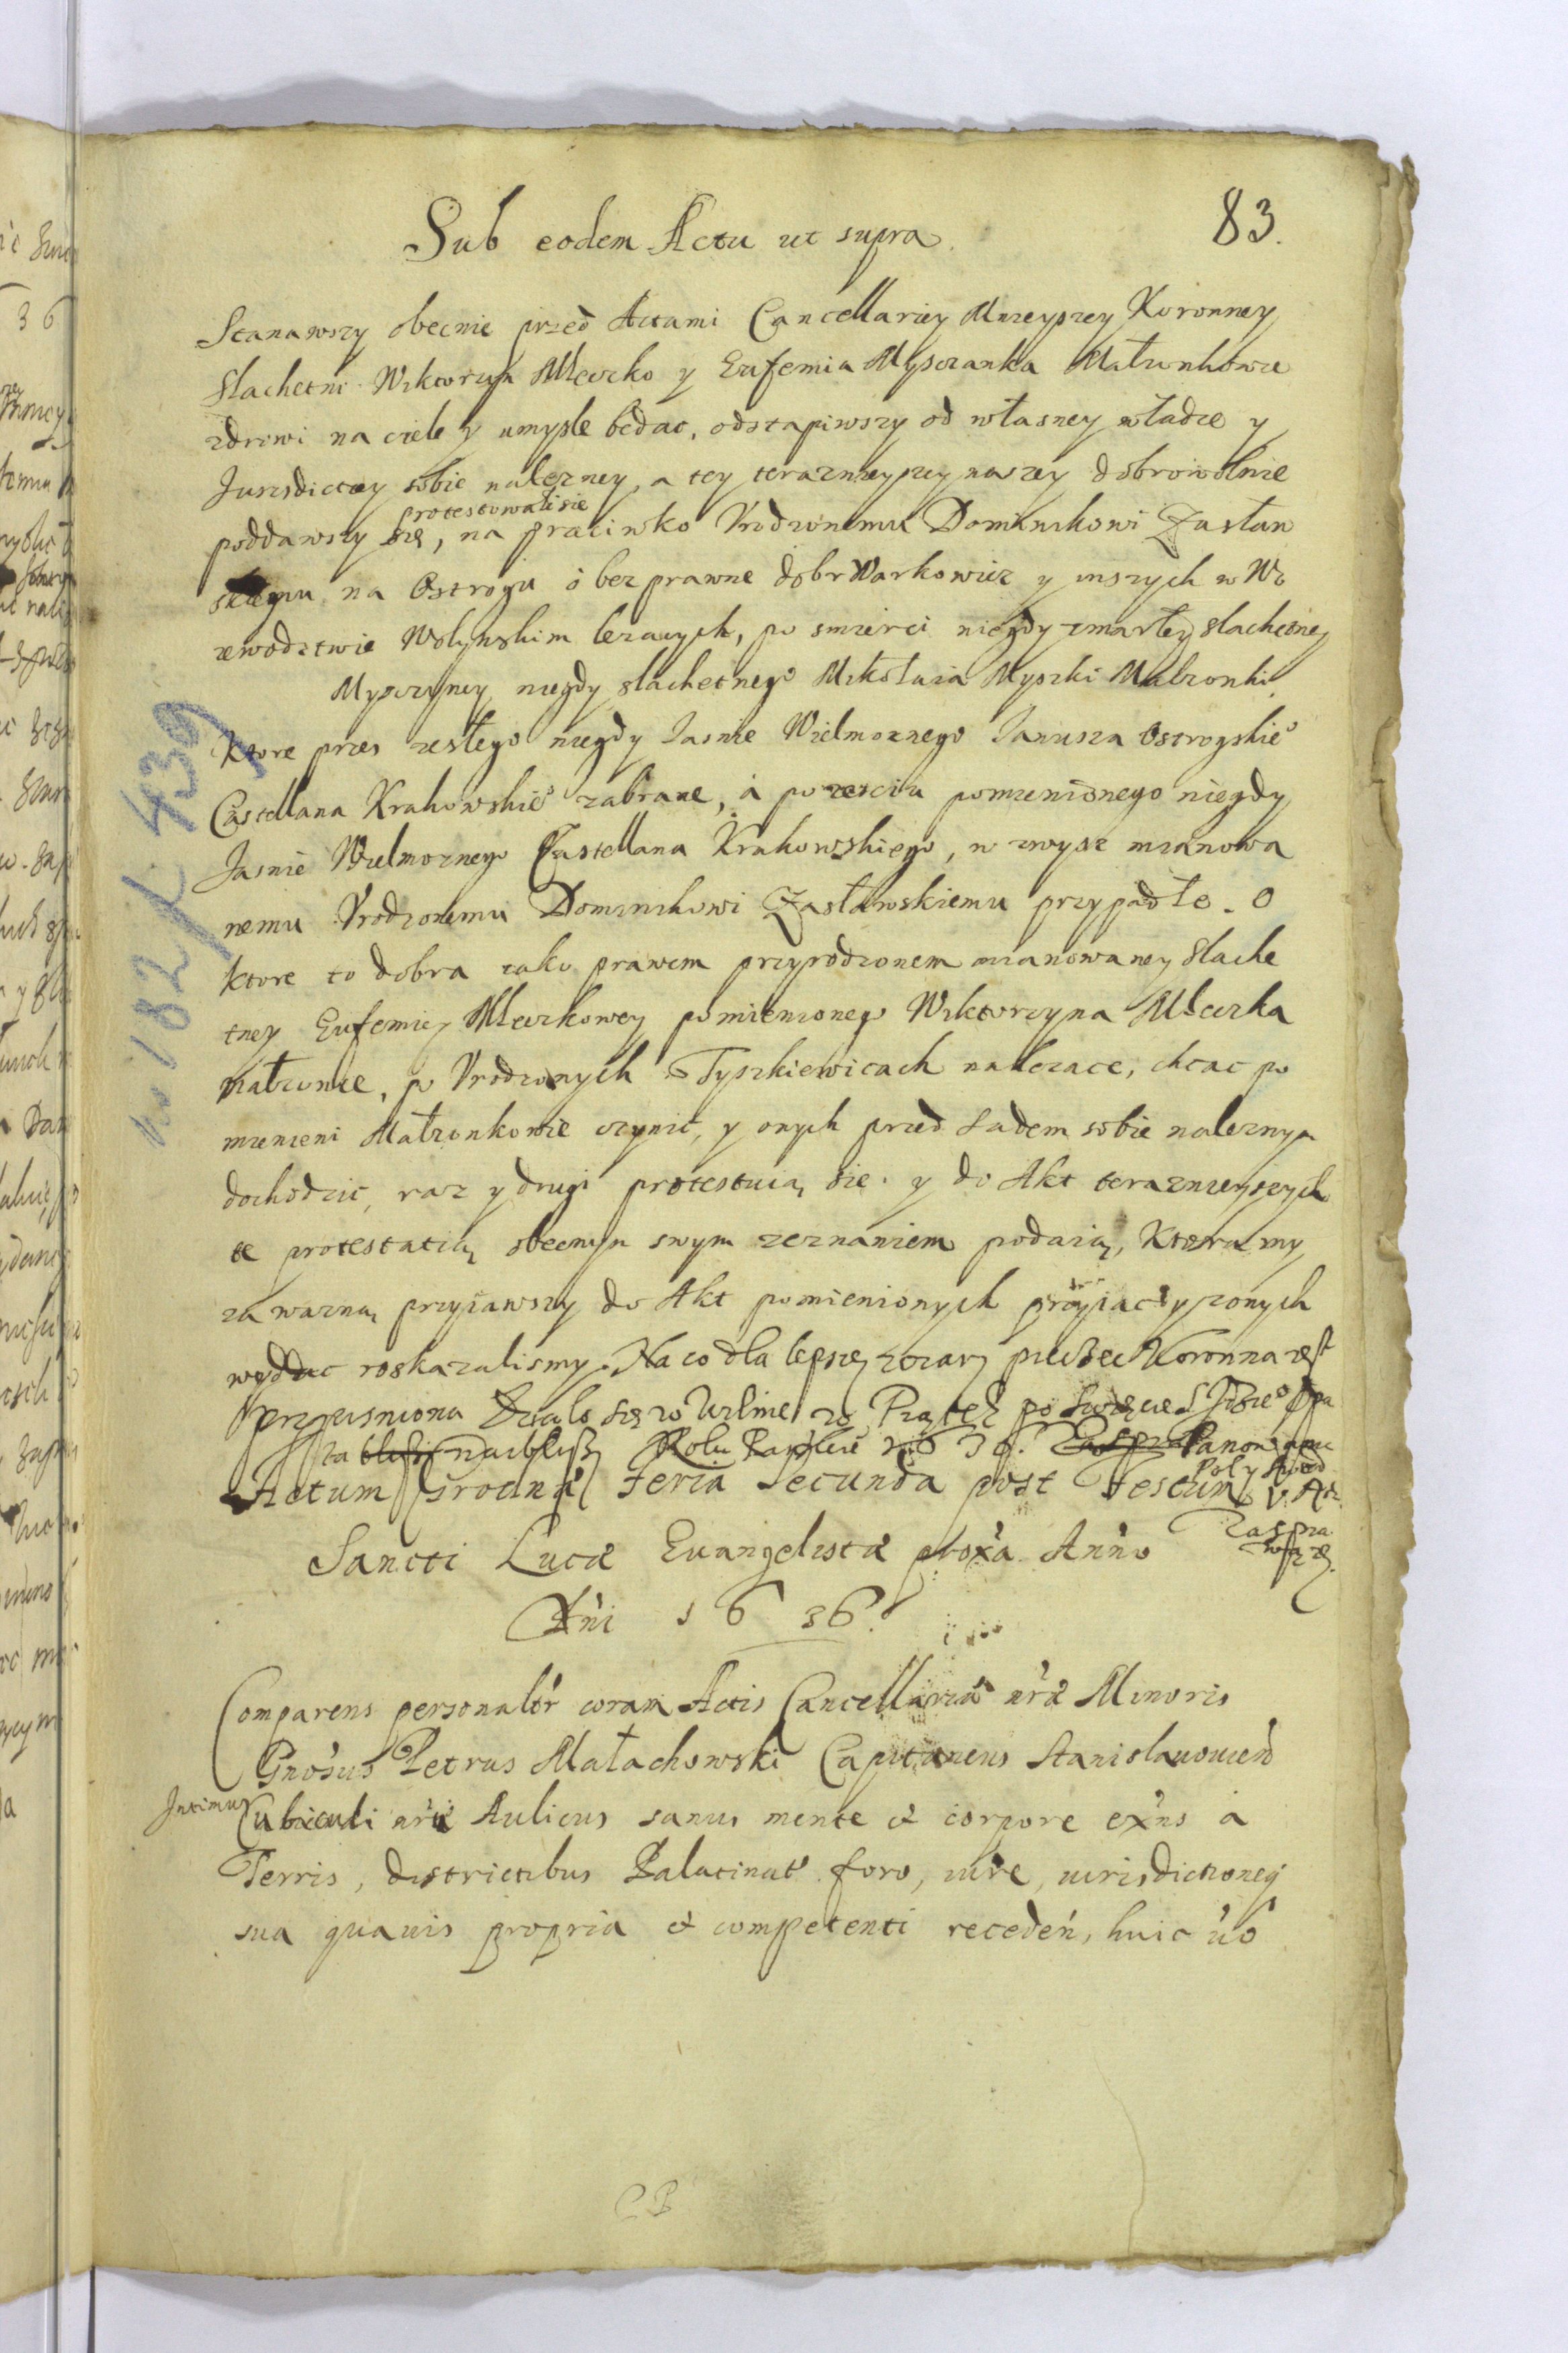 83.
Sub eodem Actu ut supra.
Stanawszy obecnie przed Actami Cancellariey Mnieyszey Koronney
Slachetni Wiktoryn Mleczko y Eufemia Myszczanka Małzonkowie
zdrowi na ciele y umysle bedac, odstapiwszy od własney władze y
Jurisdictiey sobie nalezney, a tey teraznieyszey naszey dobrowolnie
protestowali sie
poddawszy się, na przeciwko Vrodzonemu Dominikowi Zasław
skiemu na Ostrogu o bezprawne dobr Warkowicz y inszych w Wo
iewodztwie Wołynskim lezacych, po smierci niegdy zmarłey slachetney
Myszczyney niegdy slachetnego Mikołaia Myszki Małzonki
ktore przes zesłego niegdy Iasnie Wielmoznego Janusza Ostrogskieo
Castellana Krakowskieo zabrane, a po zesciu pomienionego niegdy
Jasnie Wielmoznego Castellana Krakowskiego, w zwysz mianowa
nemu Vrodzonemu Dominikowi Zasławskiemu przypadłe. O
ktore to dobra iako prawem przyrodzonem mianowaney slache
tney Eufemiey Mleczkowey pomienionego Wiktoryna Mleczka
małzonce, po Vrodzonych Tyszkiewicach nalezace, chcac po
mienieni Małzonkowie czynic, y onych przed Sadem sobie naleznym
dochodzic, raz y drugi protestuią sie. y do Akt teraznieyszych
te protestatią obecnym swym zeznaniem podaią, Ktorą my
za wazną przyiawszy do Akt pomienionych
roskazalismy. Na co dla lepszey wiary pieczec Koronna iest
przycisniona Działo się w Wilnie w Piątek po Swięcie S
ta naiblizszy Roku Panskie 1636. Panowania
Pol y Swed
Actum Grodnæ Feria Secunda post Festum
Sancti Lucæ Euangelistæ proxa Anno
Dni 1636.
Comparens personalr coram Actis Cancellariæ nræ Minoris
Gnosus Petrus Małachowski Capitaneus Stanislauouien
Intimus Cubiculi nri Aulicus sanus mente et corpore exns a
Terris, districtibus Palatinat foro, iure, iurisdictioneq
sua quauis propria et competenti receden, huic uo
No 182 K 439